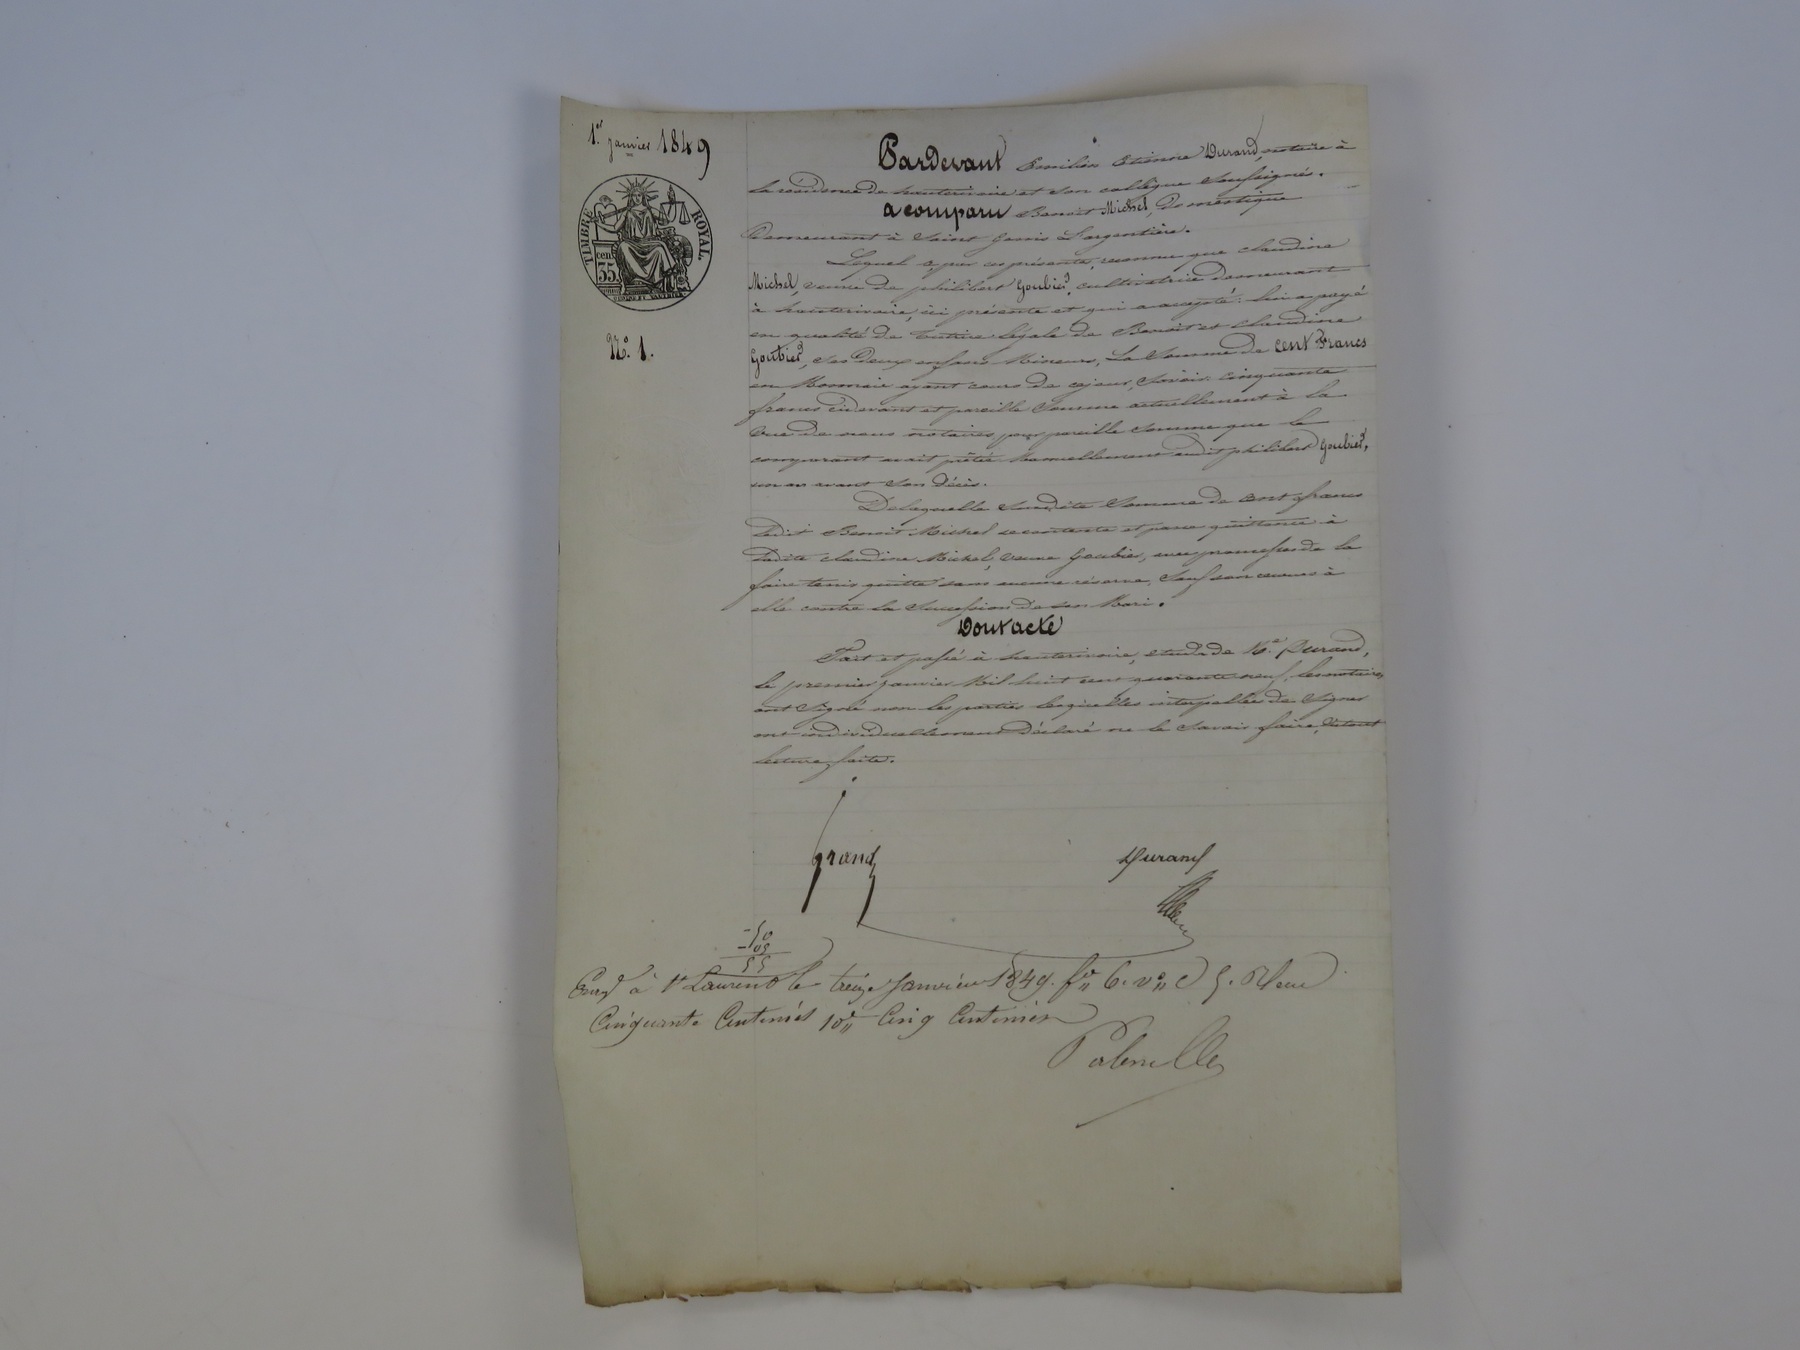 1er janvier 1849
TIMBRE ROYAL.
cen
35
No. 1.
Pardevant Emilien Etienne Durand, notaire à
la résidence de hauterivoire et son collègue soussignés.
a comparu Benoit Michel, domestique
Demeurant à Saint Genis L'argentière.
Lequel a, par ces présentes, reconnu que claudine
Michel, veuve de philibert Goubier, cultivatrice demeurant
à hauterivoire, ici présente et qui a accepté: lui a payé
en qualité de tutrice légale de Benoit et claudine
Goubier, ses deux enfans Mineurs, La Somme de cent Francs
en Monnaie ayant cours de ce jour, Savoir: cinquante
francs cidevant et pareille Somme actuellement à la
vue de nous notaires, pour pareille Somme que le
comparant avait prêtée Manuellement audit philibert Goubier,
un an avant son décès.
De laquelle Susdite Somme de cent francs
ledit Benoit Michel se contente et passe quittance à
ladite claudine Michel, veuve Goubier, avec promesse de la
faire tenir quitte sans aucune réserve, Sauf son recours à
elle contre la Succession de son Mari.
Dont acte
Fait et passé à hauterivoire, étude de Me. Durand,
le premier janvier Mil huit cent quarante neuf. Les notaires
ont Signé non les parties lesquelles interpellées de Signer
ont individuellement déclaré ne le Savoir faire, de tout
lecture faite.
grand Durand
50
05
55
Enregé à St Laurent le treize Janvier 1849. fo 6. vo C 5. Reçu
Cinquante Centimes 10e Cinq Centimes